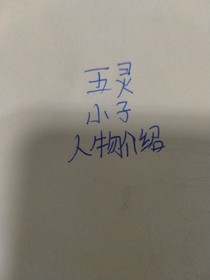 五灵
小子
人物介绍